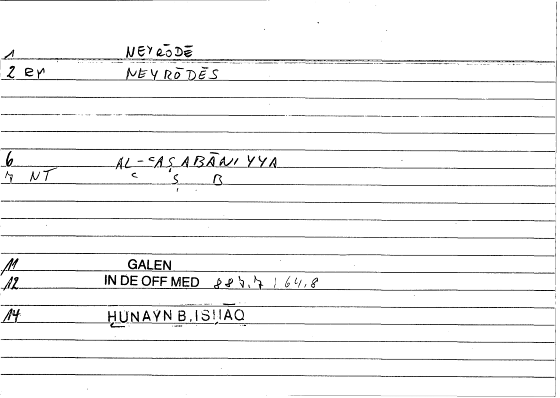 1 NEYRŌDĒ
2 er NEYRŌDĒS
6 AL-ʿAṢABĀNIYYA
7 NT ʿ Ṣ B
11 GALEN
12 IN DE OFF MED 887.7 / 64,8
14 ḤUNAYN B. ISḤĀQ